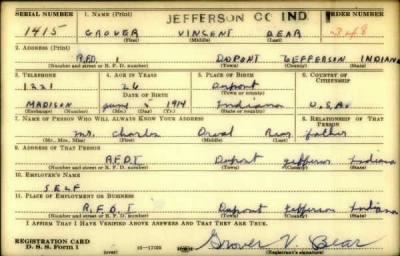 JEFFERSON CO IND.
SERIAL NUMBER 1. NAME (Print) ORDER NUMBER
1415 GROVER VINCENT BEAR 248
(First) (Middle) (Last)
2. ADDRESS (Print)
R.F.D. 1 DUPONT JEFFERSON INDIANA
(Number and street or R. F. D. number) (Town) (County) (State)
3. TELEPHONE 4. AGE IN YEARS 5. PLACE OF BIRTH 6. COUNTRY OF CITIZENSHIP
1221 26 Dupont
DATE OF BIRTH (Town or county)
MADISON June 5 1914 Indiana U.S.A.
(Exchange) (Number) (Mo.) (Day) (Yr.) (State or country)
7. NAME OF PERSON WHO WILL ALWAYS KNOW YOUR ADDRESS 8. RELATIONSHIP OF THAT PERSON
Mr. Charles Orval Bear father
(Mr., Mrs., Miss) (First) (Middle) (Last)
9. ADDRESS OF THAT PERSON
R.F.D. 1 Dupont Jefferson Indiana
(Number and street or R. F. D. number) (Town) (County) (State)
10. EMPLOYER'S NAME
SELF
11. PLACE OF EMPLOYMENT OR BUSINESS
R.F.D. 1 Dupont Jefferson Indiana
(Number and street or R. F. D. number) (Town) (County) (State)
I AFFIRM THAT I HAVE VERIFIED ABOVE ANSWERS AND THAT THEY ARE TRUE.
REGISTRATION CARD
D. S. S. Form 1 16-17105 Grover V. Bear
(Registrant's signature)